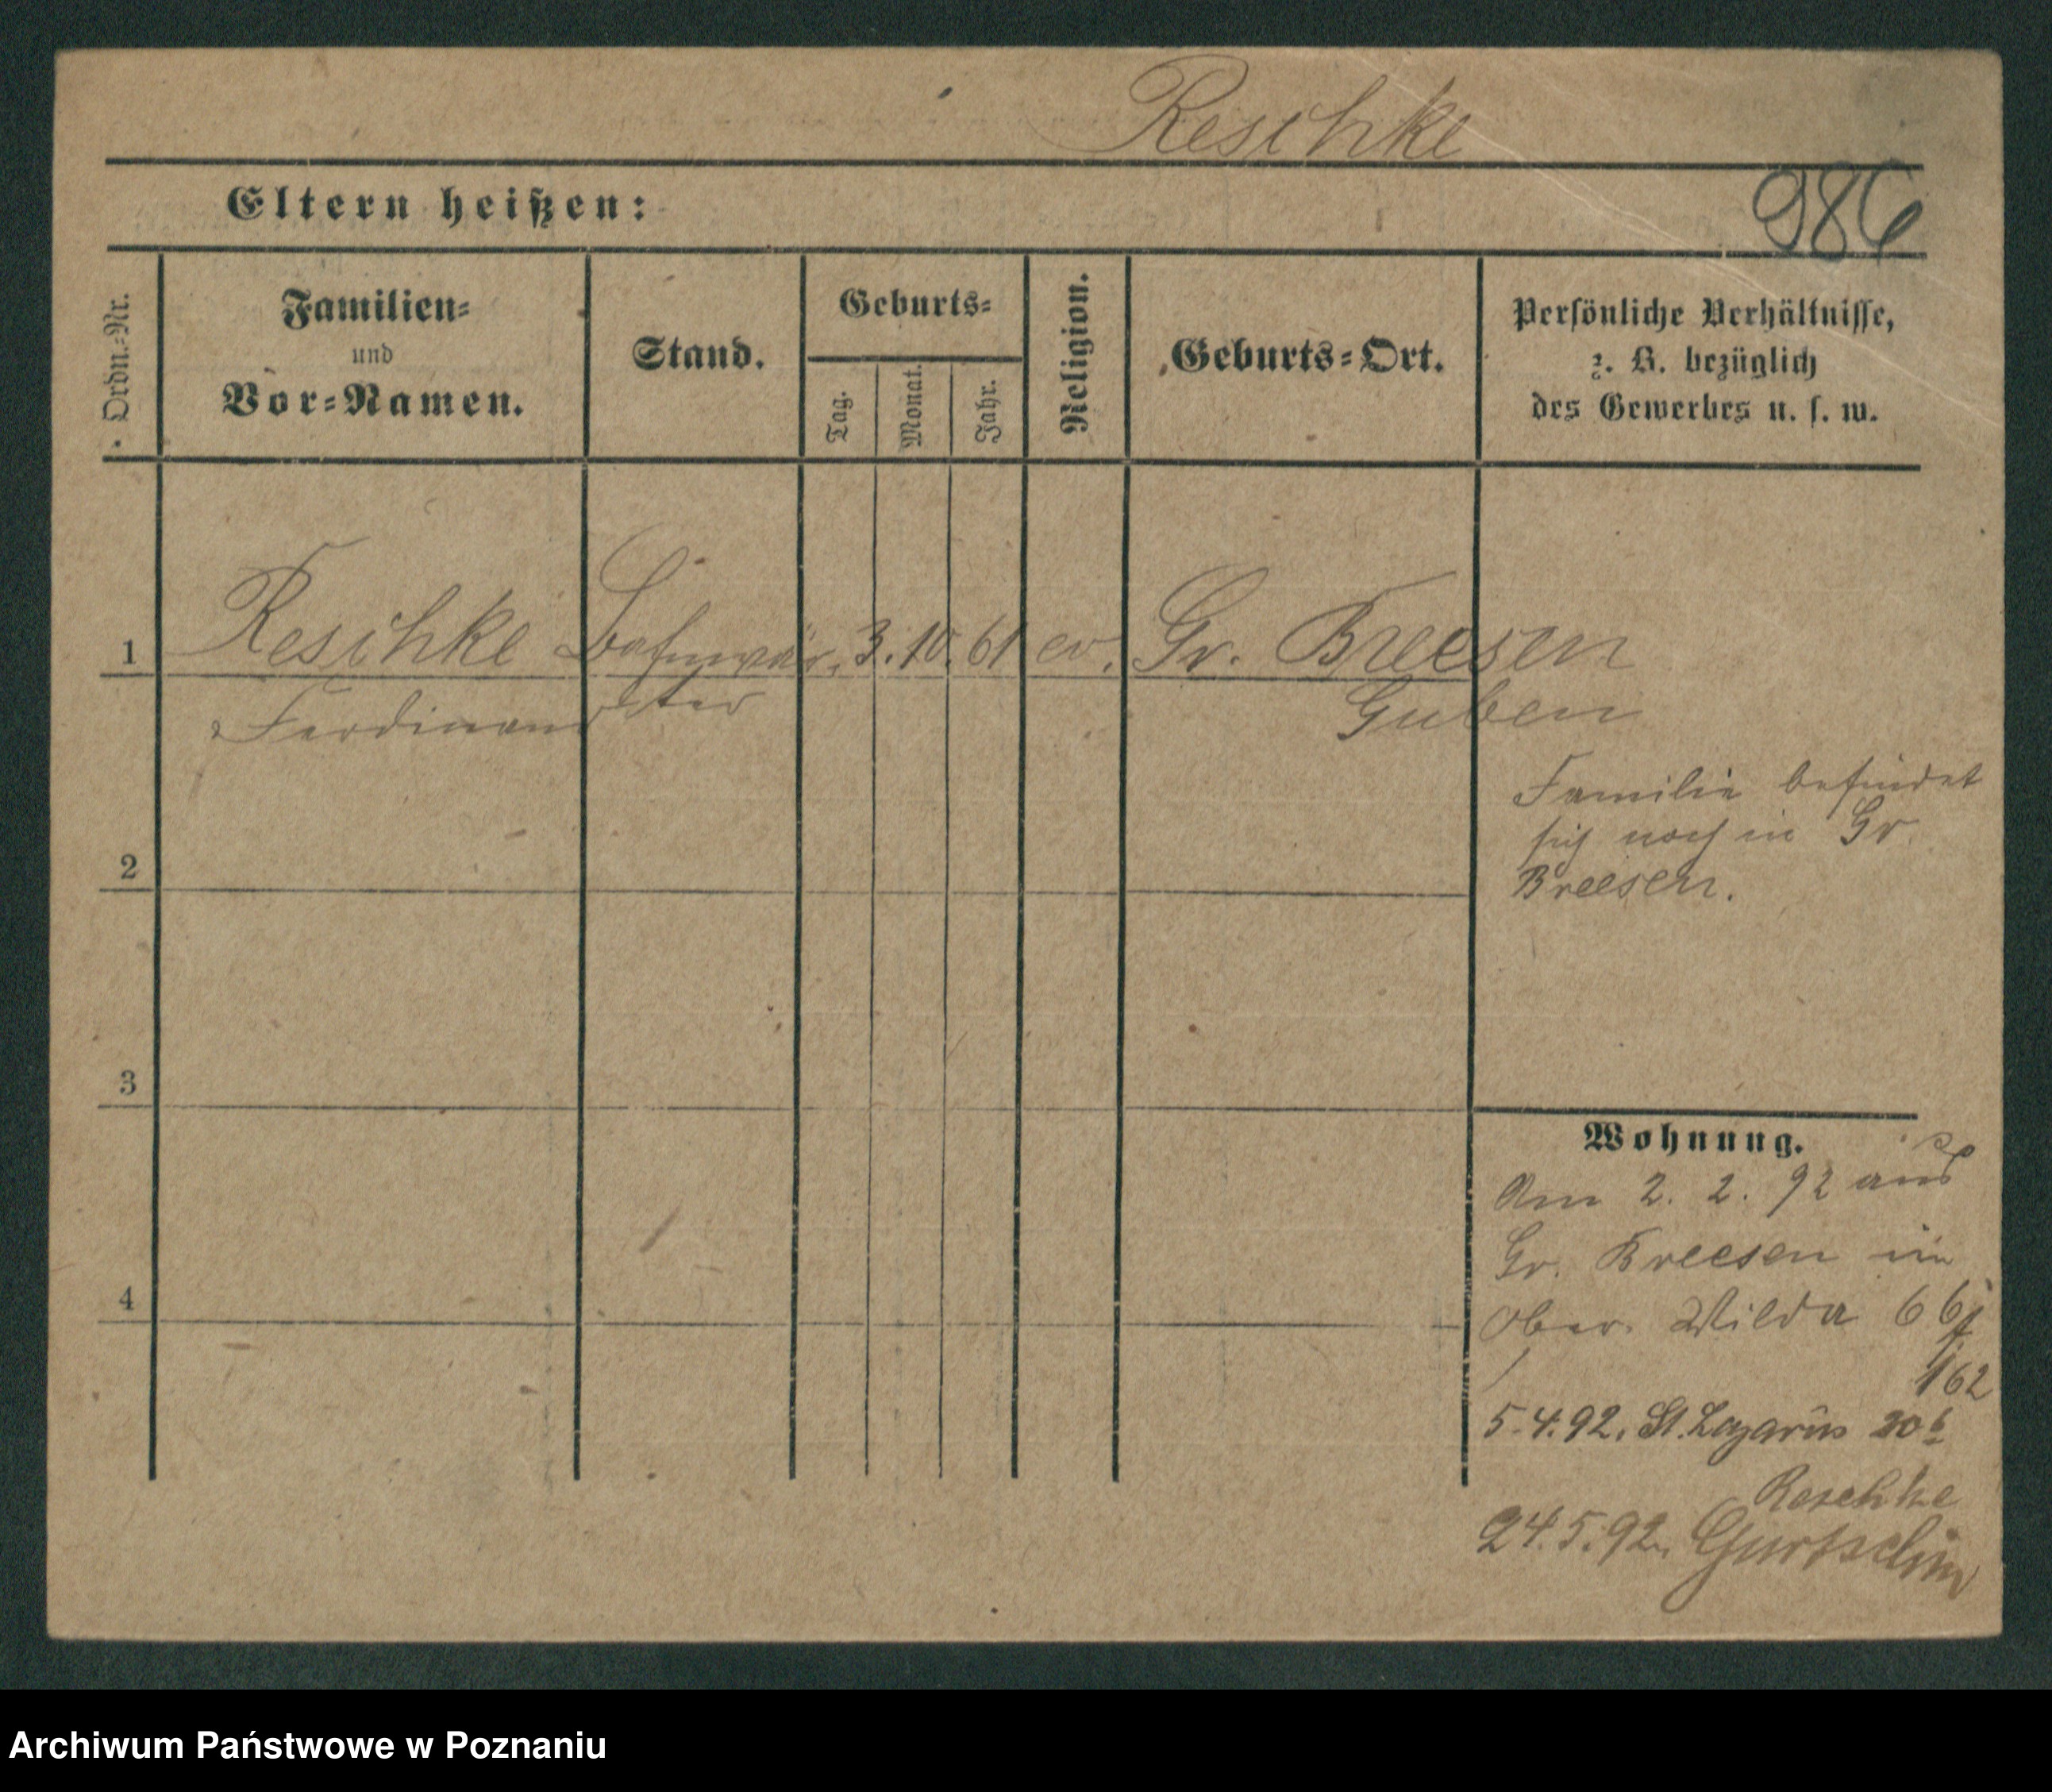 Reschke
Eltern heißen:
986
Ordn.-Nr.
Familien-
und
Vor-Namen.
Stand.
Geburts-
Tag.
Monat.
Jahr.
Religion.
Geburts-Ort.
Persönliche Verhältnisse,
z. B. bezüglich
des Gewerbes u. s. w.
1 Reschke Bahnwär- 3. 10. 61 ev. Gr. Breesen
Ferdinand ter Guben
Familie befindet
sich noch in Gr.
Breesen.
2
3
4
Wohnung.
Am 2. 2. 92 aus
Gr. Breesen in
Ober Wilda 66
162
5.4.92. St. Lazarus 30 b
Reschke
24.5.92. Gurtschin
Archiwum Państwowe w Poznaniu